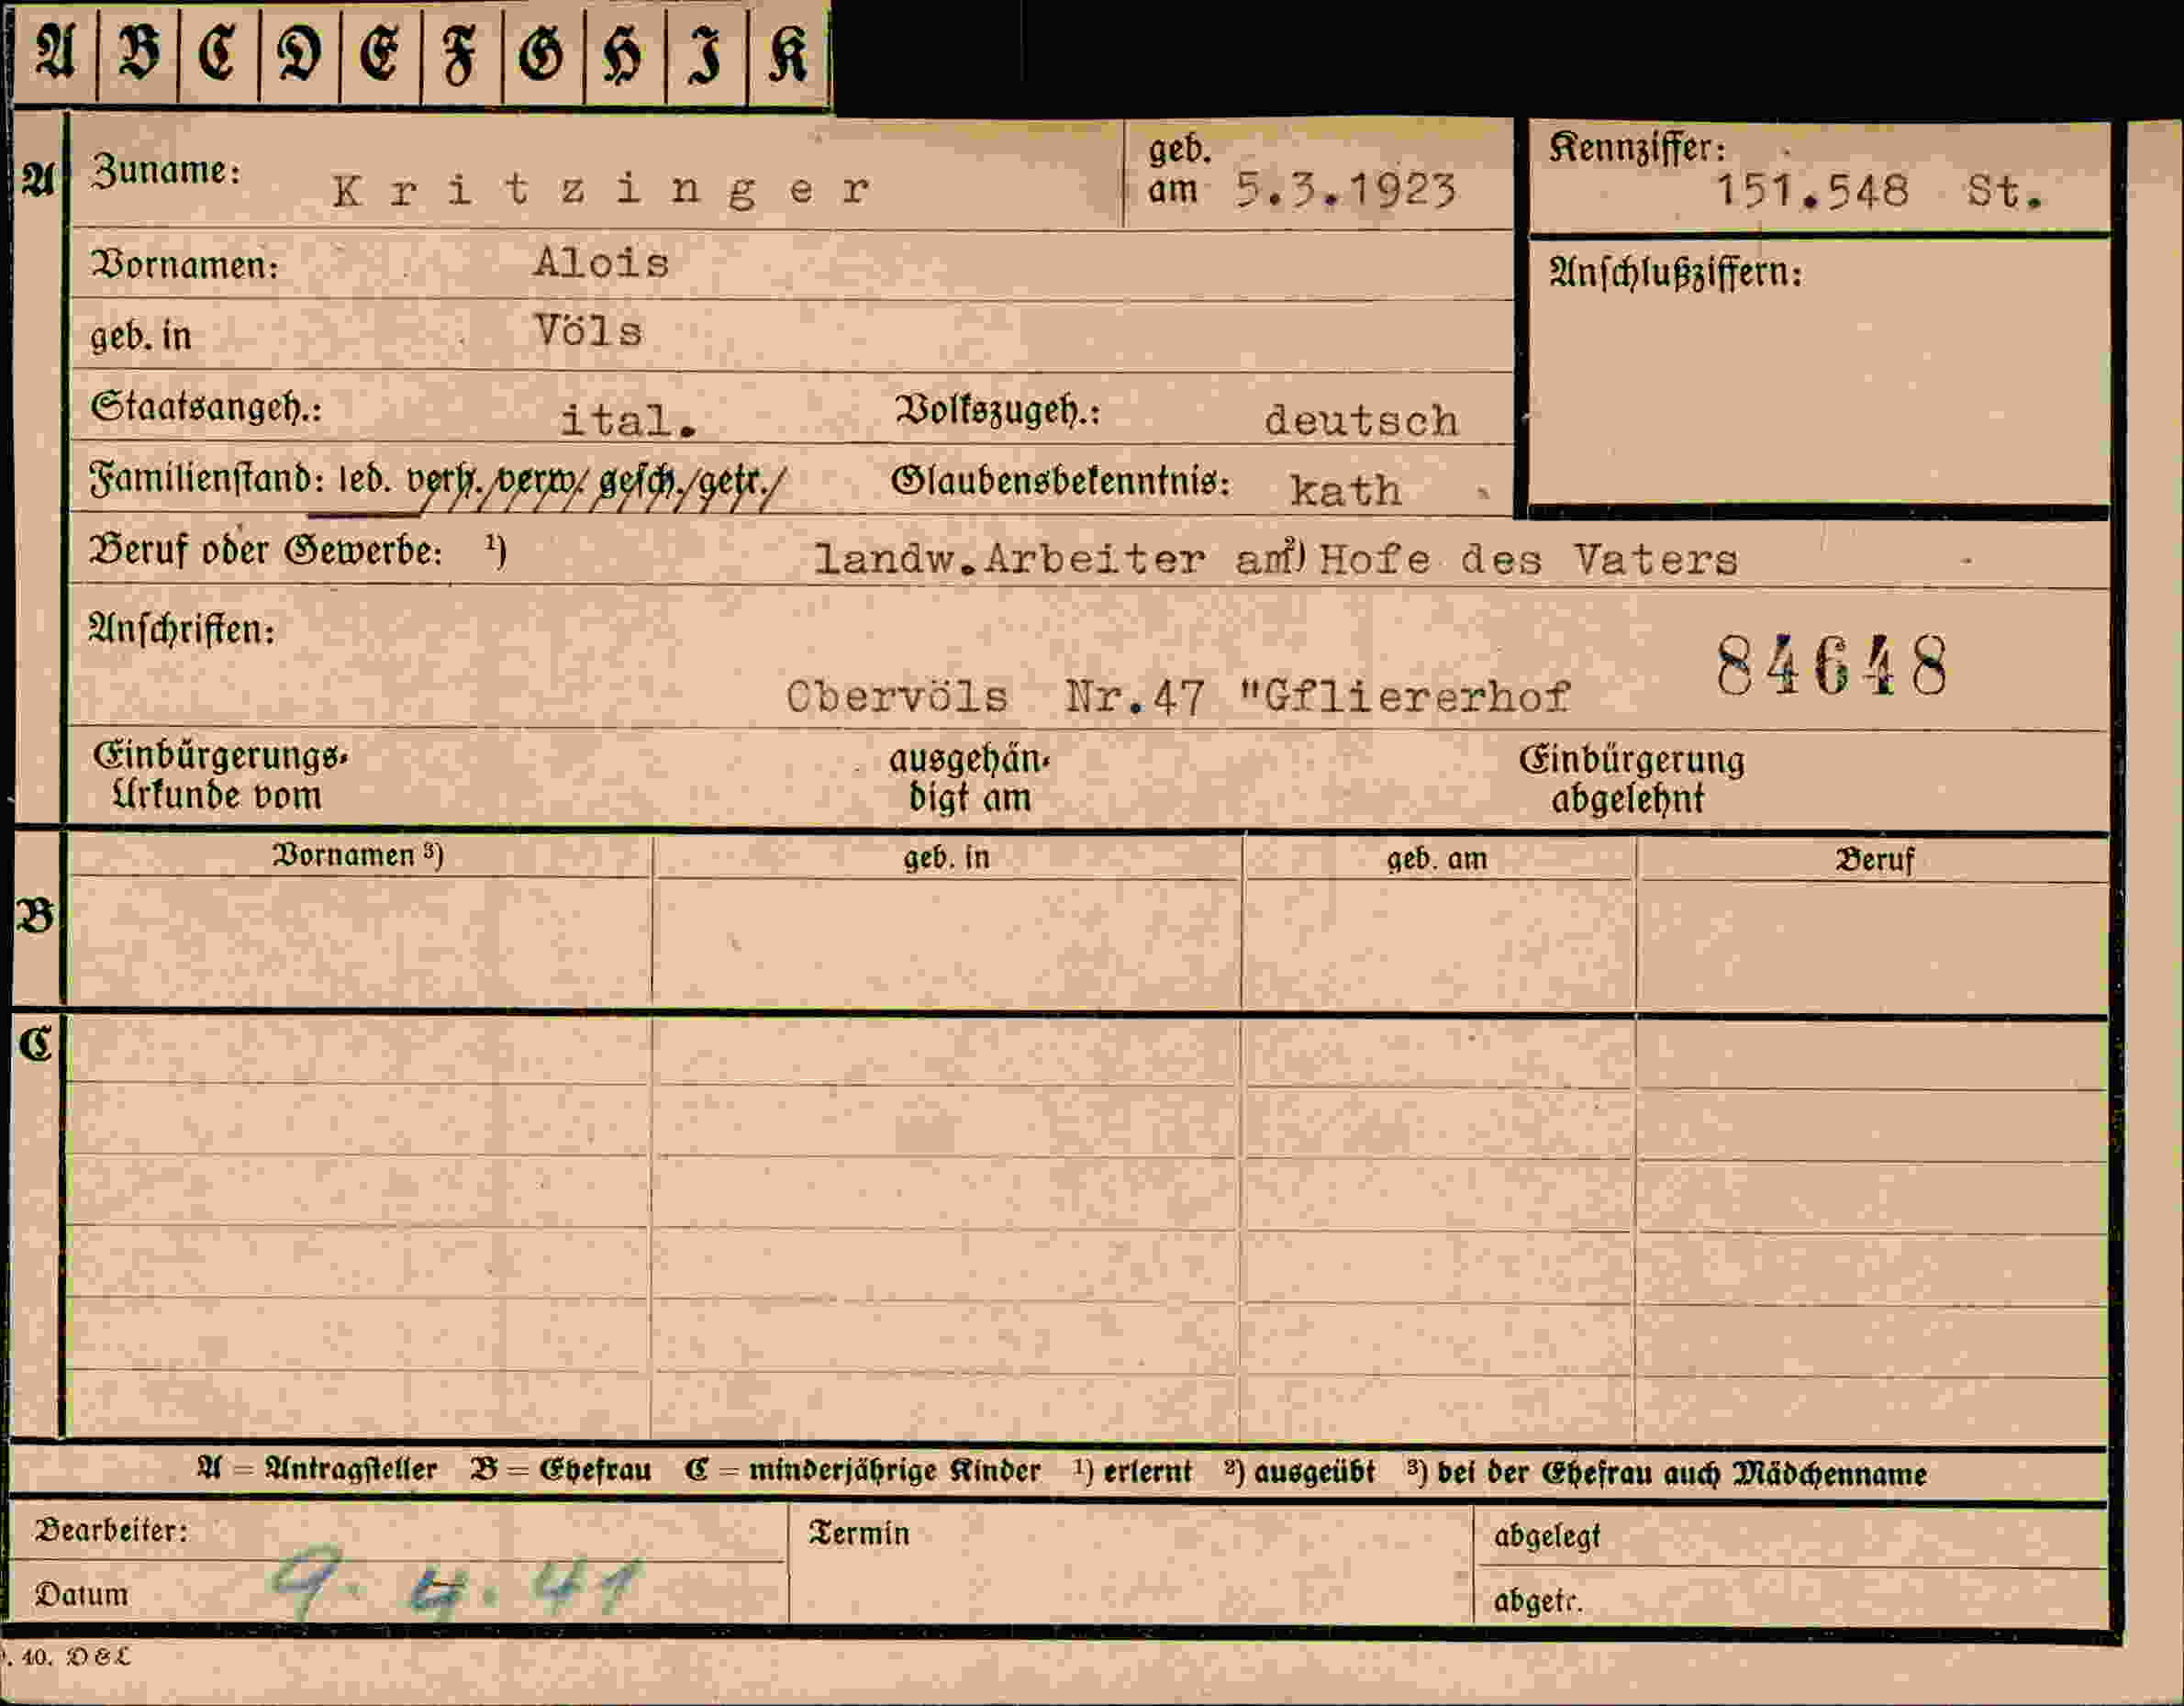 A B C D E F G H I K
A Zuname: Kritzinger geb. am 5.3.1923
Kennziffer: 151.548 St.
Vornamen: Alois
Anschlußziffern:
geb. in Völs
Staatsangeh.: ital. Volkszugeh.: deutsch
Familienstand: led. verh. verw. gesch. getr. Glaubensbekenntnis: kath
Beruf oder Gewerbe: ¹) landw.Arbeiter am ²) Hofe des Vaters
Anschriften:
84648
Obervöls Nr.47 "Gfliererhof
Einbürgerungs- ausgehän- Einbürgerung
Urkunde vom digt am abgelehnt
Vornamen ³) geb. in geb. am Beruf
B
C
A = Antragsteller B = Ehefrau C = minderjährige Kinder ¹) erlernt ²) ausgeübt ³) bei der Ehefrau auch Mädchenname
Bearbeiter: Termin abgelegt
Datum 9. 4. 41 abgetr.
. 40. D & L